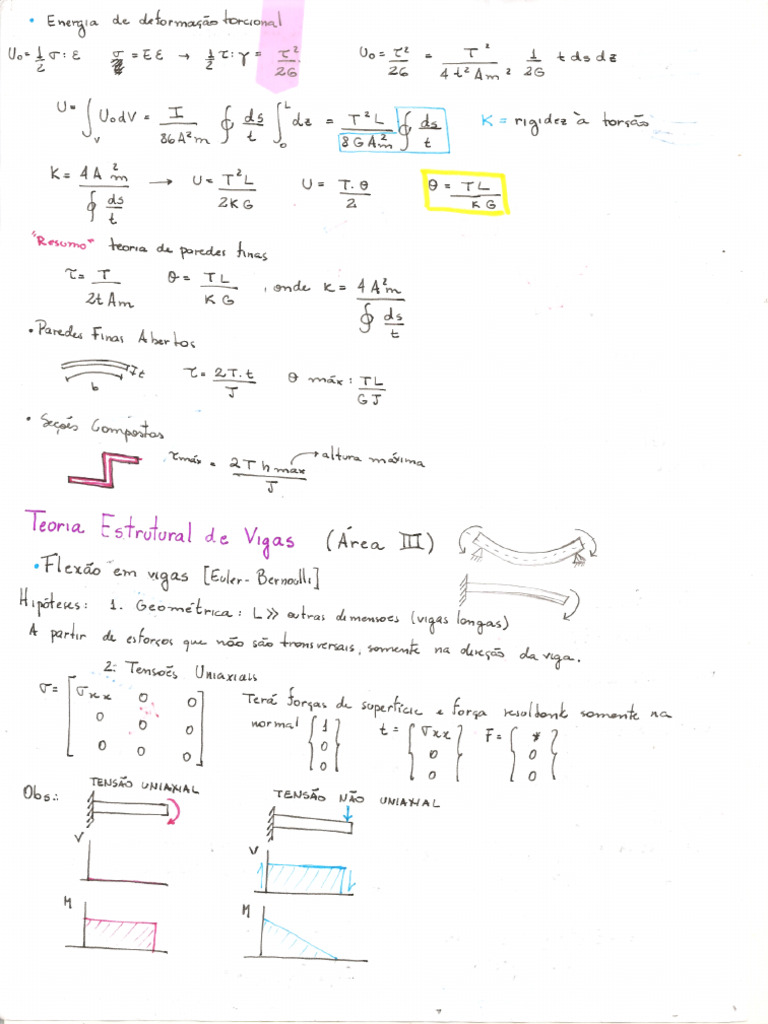 • Energia de deformação torcional
U₀ = 1/2 σ : ε   σ = E ε → 1/2 τ : γ = τ²/2G   U₀ = τ²/2G = T²/4t²Am² 1/2G t ds dz
U = ∫_V U₀ dV = I/86A²m ∮ ds/t ∫₀^L dz = T²L/8GAm² ∮ ds/t   K = rigidez à torção
K = 4A²m/∮ ds/t → U = T²L/2KG   U = T.θ/2   θ = TL/KG
"Resumo" teoria de paredes finas
τ = T/2tAm   θ = TL/KG , onde K = 4A²m/∮ ds/t
• Paredes Finas Abertos
b   t   τ = 2T.t/J   θ máx : TL/GJ
• Seções Compostas
τmáx = 2T hmax/J → altura máxima
Teoria Estrutural de Vigas (Área III)
• Flexão em vigas [Euler-Bernoulli]
Hipóteses: 1. Geométrica: L >> outras dimensões (vigas longas)
A partir de esforços que não são transversais, somente na direção da viga.
2: Tensões Uniaxiais
σ = [σxx 0 0; 0 0 0; 0 0 0]   Terá forças de superfície e força resultante somente na
normal {1 0 0}   t = {σxx 0 0}   F = {* 0 0}
Obs.:   TENSÃO UNIAXIAL   TENSÃO NÃO UNIAXIAL
V   V
M   M